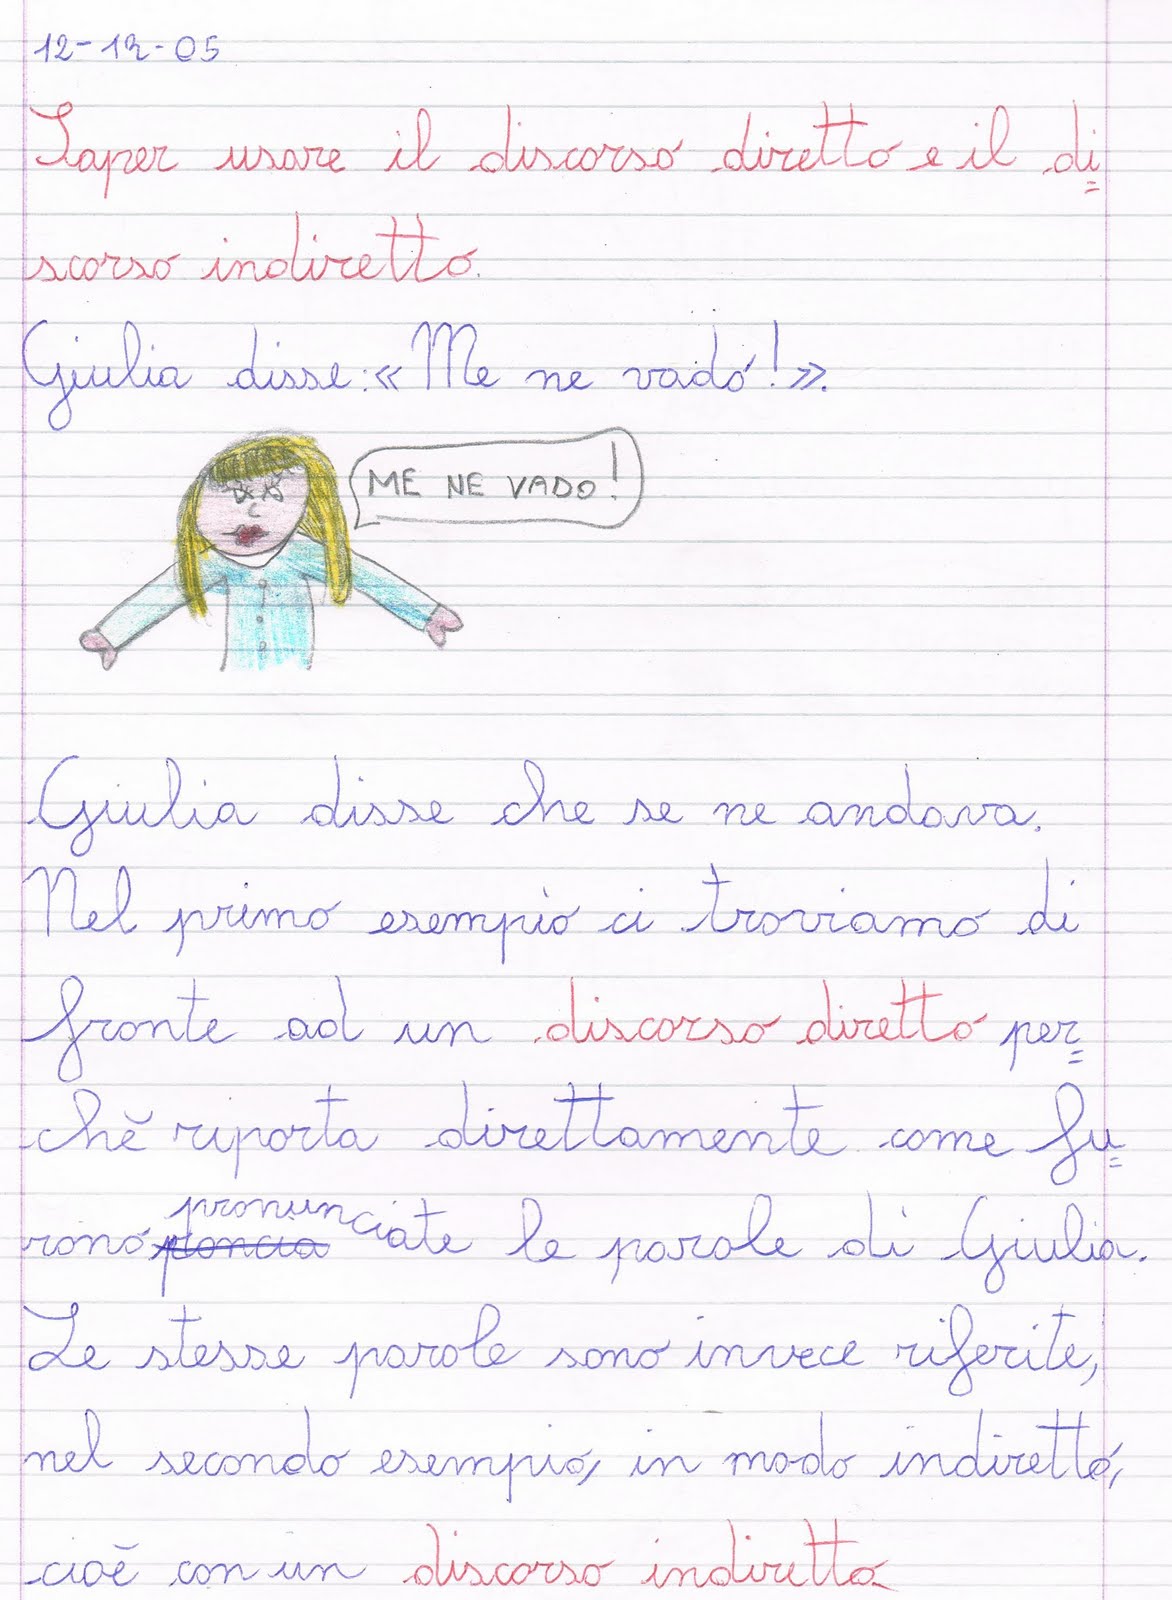 12-12-05
Saper usare il discorso diretto e il di=
scorso indiretto.
Giulia disse:«Me ne vado!».
ME NE VADO!
Giulia disse che se ne andava.
Nel primo esempio ci troviamo di
fronte ad un discorso diretto per=
chè riporta direttamente come fu=
rono pronunciate le parole di Giulia.
Le stesse parole sono invece riferite,
nel secondo esempio, in modo indiretto,
cioè con un discorso indiretto